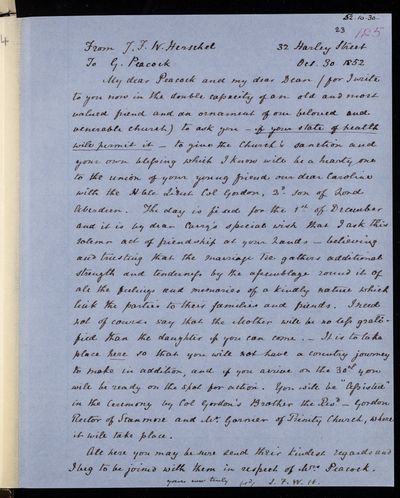 52.10.30
23 185
4
From J. F. W. Herschel 32 Harley Street
To G. Peacock Oct. 30 1852
My dear Peacock and my dear Dean (for I write
to you now in the double capacity of an old and most
valued friend and an ornament of our beloved and
venerable church) to ask you - if your state of health
will permit it - to give the Church's sanction and
your own blessing which I know will be a hearty one
to the union of your young friend our dear Caroline
with the Hble Lieut Col Gordon, 2d son of Lord
Aberdeen. The day is fixed for the 1st of December
and it is my dear Carry's special wish that I ask this
solemn act of friendship at your hands - believing
and trusting that the marriage tie gathers additional
strength and tenderness by the assemblage round it of
all the feelings and memories of a kindly nature which
link the parties to their families and friends. I need
not of course say that the Mother will be no less grati-
fied than the daughter if you can come. - It is to take
place here so that you will not have a country journey
to make in addition, and if you arrive on the 30th you
will be ready on the spot for action. You will be "assisted"
in the Ceremony by Col Gordon's Brother the Revd - Gordon
Rector of Stanmore and Mr. Garnier of Trinity Church, where
it will take place.
All here you may be sure send their kindest regards and
I beg to be joined with them in respect of Mrs Peacock.
yours ever truly (sd) J. F. W. H.